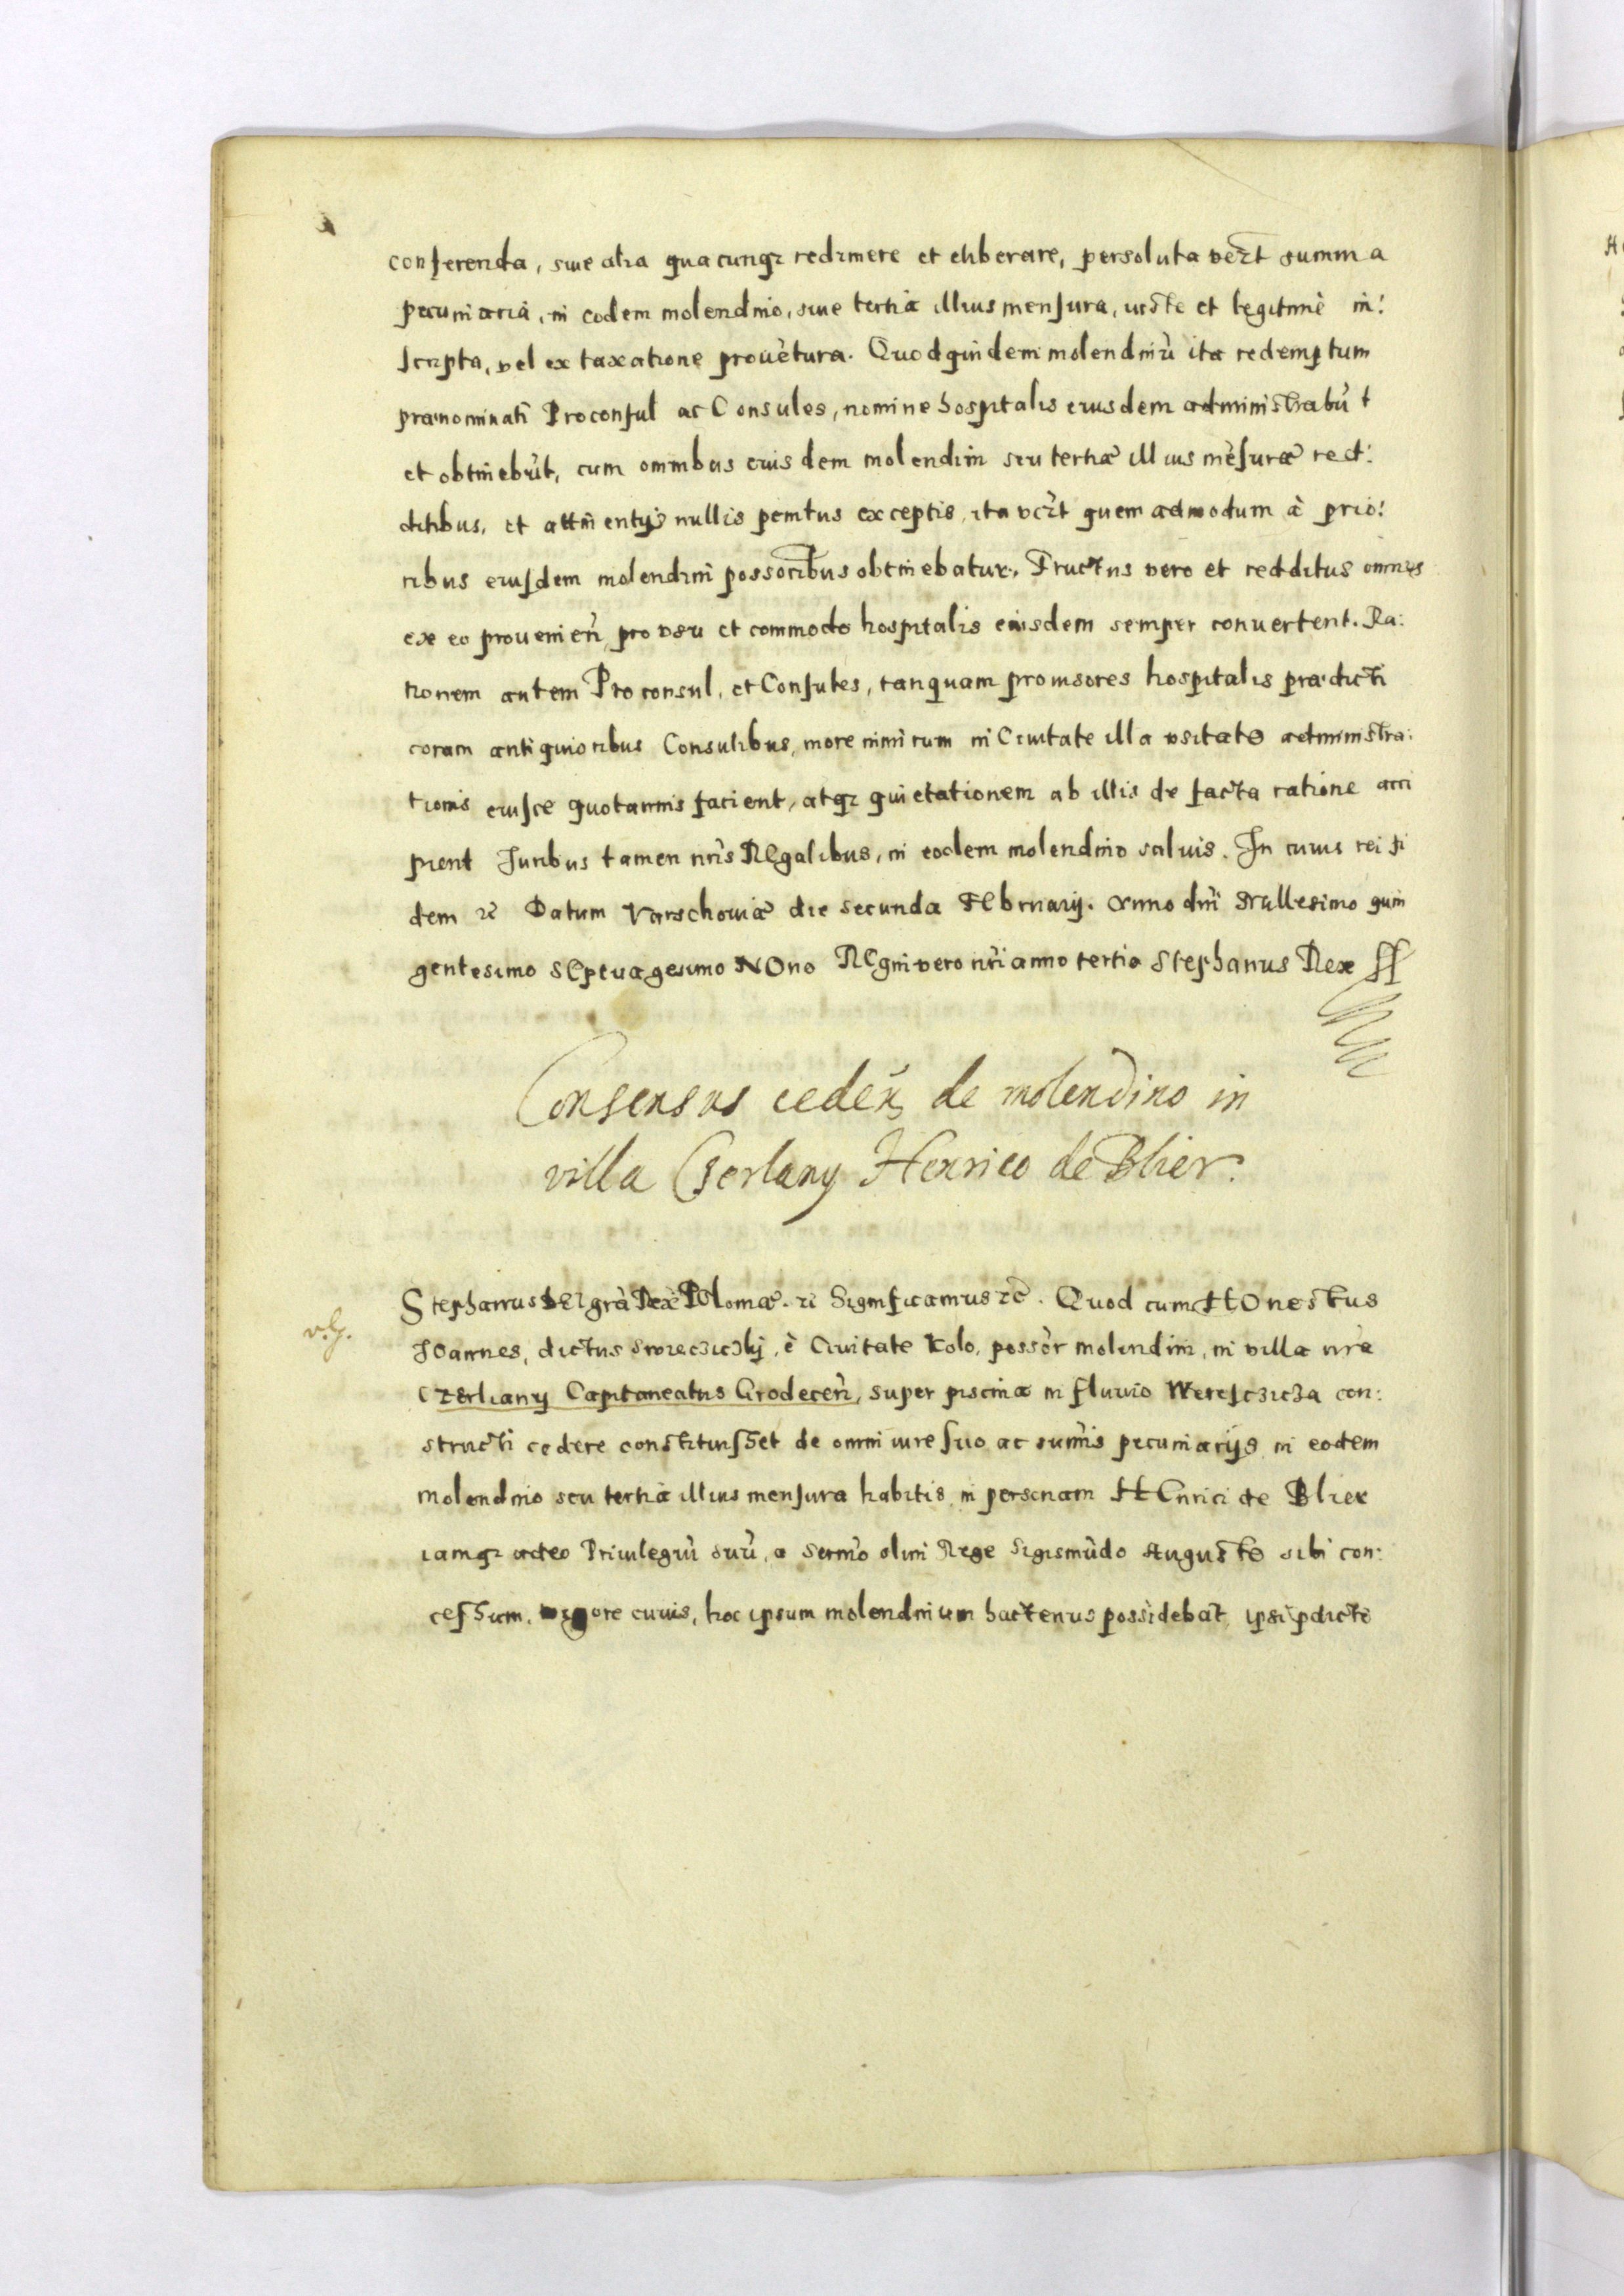 conferenda, siue alia quacunq3 redimere et eliberare, persoluta vezt summa
pecuniaria, in eodem molendino, siue tertia illius mensura, iuste et legitimè in:
scripta, vel ex taxatione prouētura. Quod quidem molendinū ita redemptum
prænominati Proconsul ac Consules, nomine hospitalis eiusdem administrabūt
et obtinebūt, cum omnibus eius dem molendini seu tertiæ illius mēsuræ red:
ditibus, et attinentijs nullis penitus exceptis, ita vezt quem admodum à prio:
ribus eiusdem molendini possoribus obtinebatur. Fructus vero et redditus omnes
ex eo prouenien̄ pro vsu et commodo hospitalis eiusdem semper conuertent. Ra:
tionem autem Proconsul, et Consules, tanquam prouisores hospitalis prædicti
coram antiquioribus Consulibus, more nimirum in Ciuitate illa vsitato administra:
tionis eiusce quotannis facient, atq3 quietationem ab illis de facta ratione acci
pient Juribus tamen nris REgalibus, in eodem molendino saluis. In cuius rei fi
dem zc Datum Varschouiæ die secunda FEbruarij. Anno dni Millesimo quin
gentesimo SEptuagesimo NOno REgni vero nri anno tertio Stephanus Rex ff
Consensus ceden de molendino in
villa Czerlany Henrico de Blier.
Stephanus DEI gra Rex POloniæ. zc Significamus zc. Quod cum HOnestus
v.g.
JOannes, dictus Swiecziczkij, è Ciuitate Kolo, possor molendini, in villa nra
Czerliany Capitaneatus Grodecen̄, super piscina in fluuio Wereszczicza con:
structi cedere constituisset de omni iure suo ac sumis pecuniarijs in eodem
molendino seu tertia illius mensura habitis in personam HEnrici de Blier
iamq3 adeo Priuilegiū suū, a Sermo olim Rege Sigismūdo Augusto sibi con:
cessum, vigore cuius, hoc ipsum molendinum hactenus possidebat, ipsi pdicto